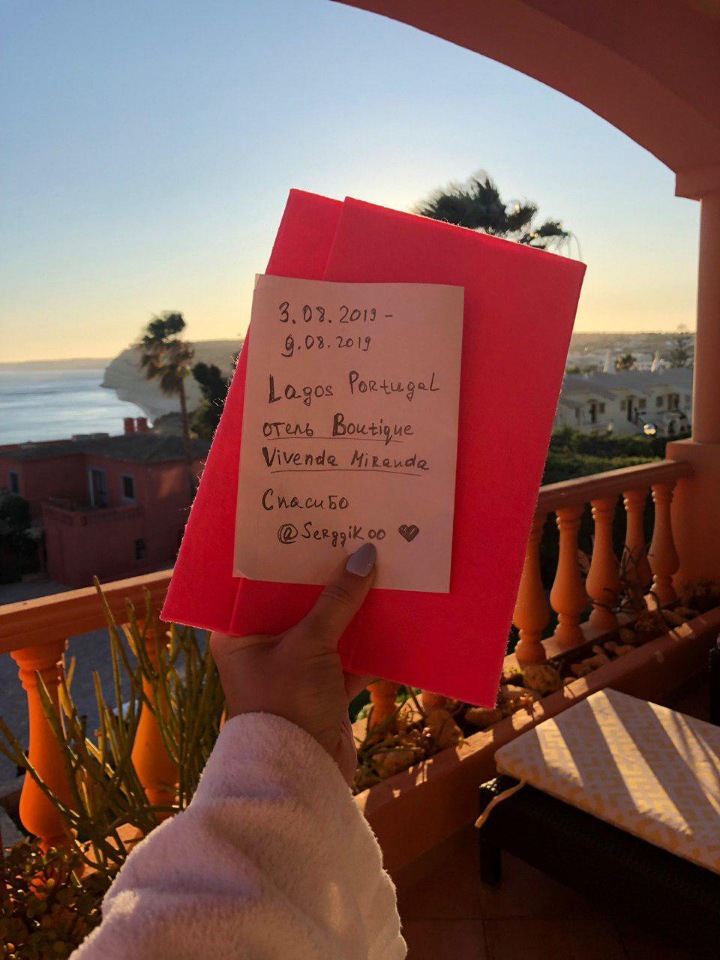 3.08.2019 -
9.08.2019
Lagos Portugal
отель Boutique
Vivenda Miranda
Спасибо
@Serggikoo ♥